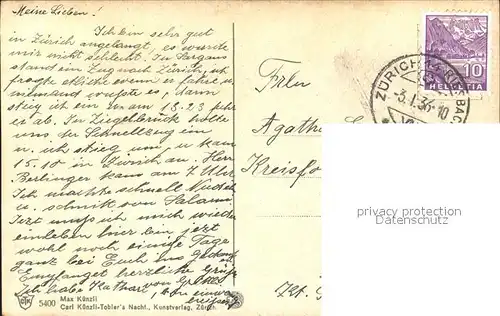 Meine Lieben!
Ich bin sehr gut
in Zürich angelangt, es wurde
mir nicht schlecht. In Sargans
stand ein Zug nach Zürich, ich
fragte etliche wenn er fahre, u.
niemand wusste es, dann
stieg ich ein u. um 13.23 fuhr
er ab. In Ziegelbrück holte
uns der Schnellzug ein
u. ich stieg um, u. kam
15.10 in Zürich an. Herr
Berlinger kam am 7 Uhr.
Ich machte schnell Nudeln
u. schnitt von Salami.
Jetzt muss ich mich wieder
einleben hier bin jetzt
wohl noch einige Tage
ganz bei Euch in Gedanken
Empfanget herzliche Grüße
Ich habe Katharr, von
HELVETIA
10
ZÜRICH
-3.I.36-10
Frln
Agathe
Kreisfo
Kt.
privacy protection
Datenschutz
5400
Max Künzli
Carl Künzli-Tobler's Nachf., Kunstverlag, Zürich